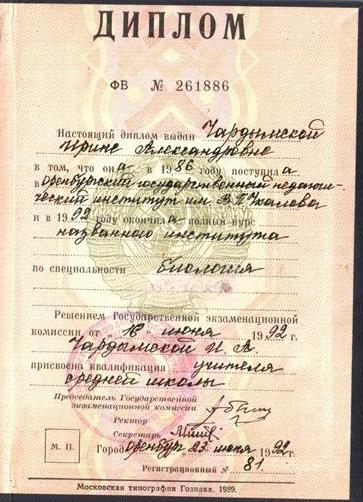 ДИПЛОМ
ФВ № 261886
Настоящий диплом выдан Чардымской
Ирине Александровне
в том, что она в 1986 году поступила
в Оренбургский государственный педагоги-
ческий институт им. В.П. Чкалова
и в 1992 году окончила полный курс
названного института
по специальности биология
Решением Государственной экзаменационной
комиссии от „16" июня 1992 г.
Чардымской И. А.
присвоена квалификация учителя
средней школы
Председатель Государственной
экзаменационной комиссии
Ректор
Секретарь
М. П.
Город Оренбург 23 июня 1992 г.
Регистрационный № 81.
Московская типография Гознака. 1989.